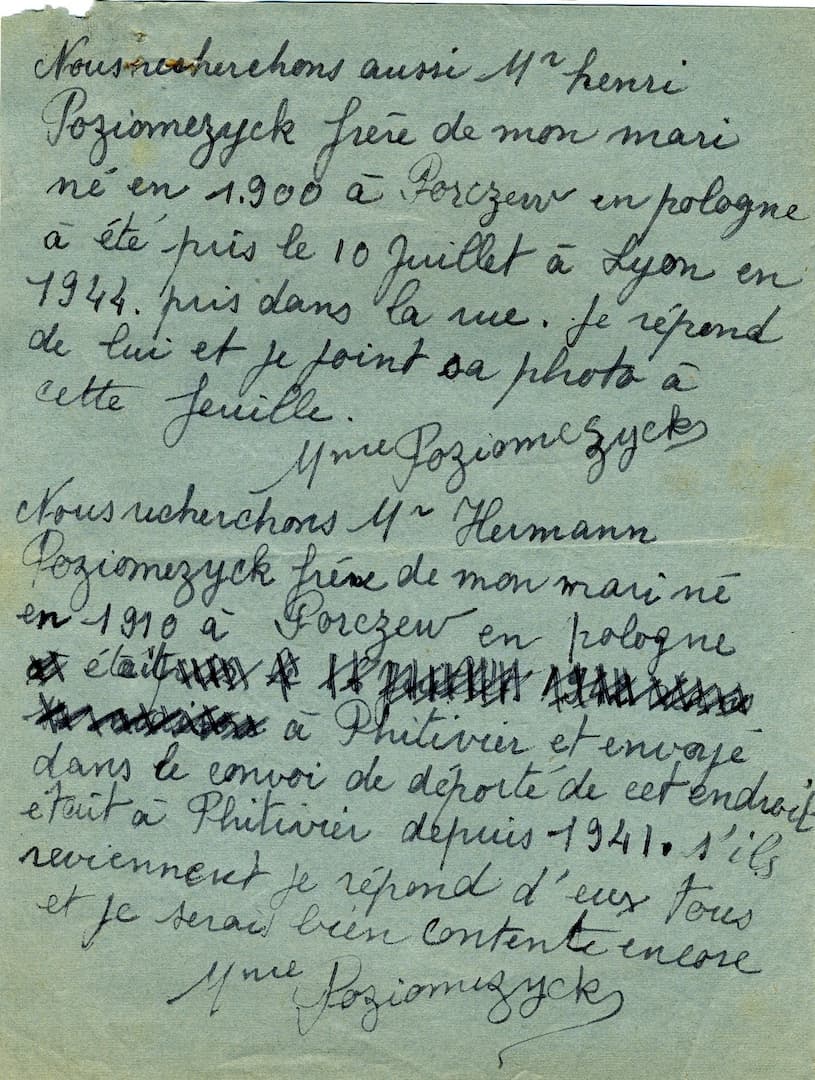 Nous recherchons aussi Mr henri
Poziomezyck frère de mon mari
né en 1.900 à Porczew en pologne
à été pris le 10 Juillet à Lyon en
1944. pris dans la rue. Je répond
de lui et je joint sa photo à
cette feuille.
Mme Poziomezyck
Nous recherchons Mr Hermann
Poziomezyck frère de mon mari né
en 1910 à Porczew en pologne
était
à Phitivier et envoyé
dans le convoi de déporté de cet endroit
etait à Phitivier depuis 1941. s'ils
reviennent je répond d'eux tous
et je serai bien contente encore
Mme Poziomezyck